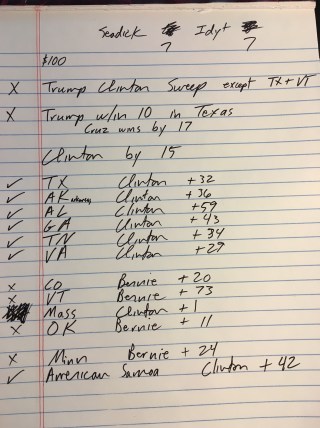 Seadick Idyt
7 7
$100
X Trump Clinton Sweep except TX + VT
X Trump w/in 10 in Texas
Cruz wins by 17
Clinton by 15
✓ TX Clinton +32
✓ AK Arkansas Clinton +36
✓ AL Clinton +59
✓ GA Clinton +43
✓ TN Clinton +34
✓ VA Clinton +29
X CO Bernie +20
X VT Bernie +73
Mass Clinton +1
X OK Bernie + 11
X Minn Bernie +24
✓ American Samoa Clinton +42